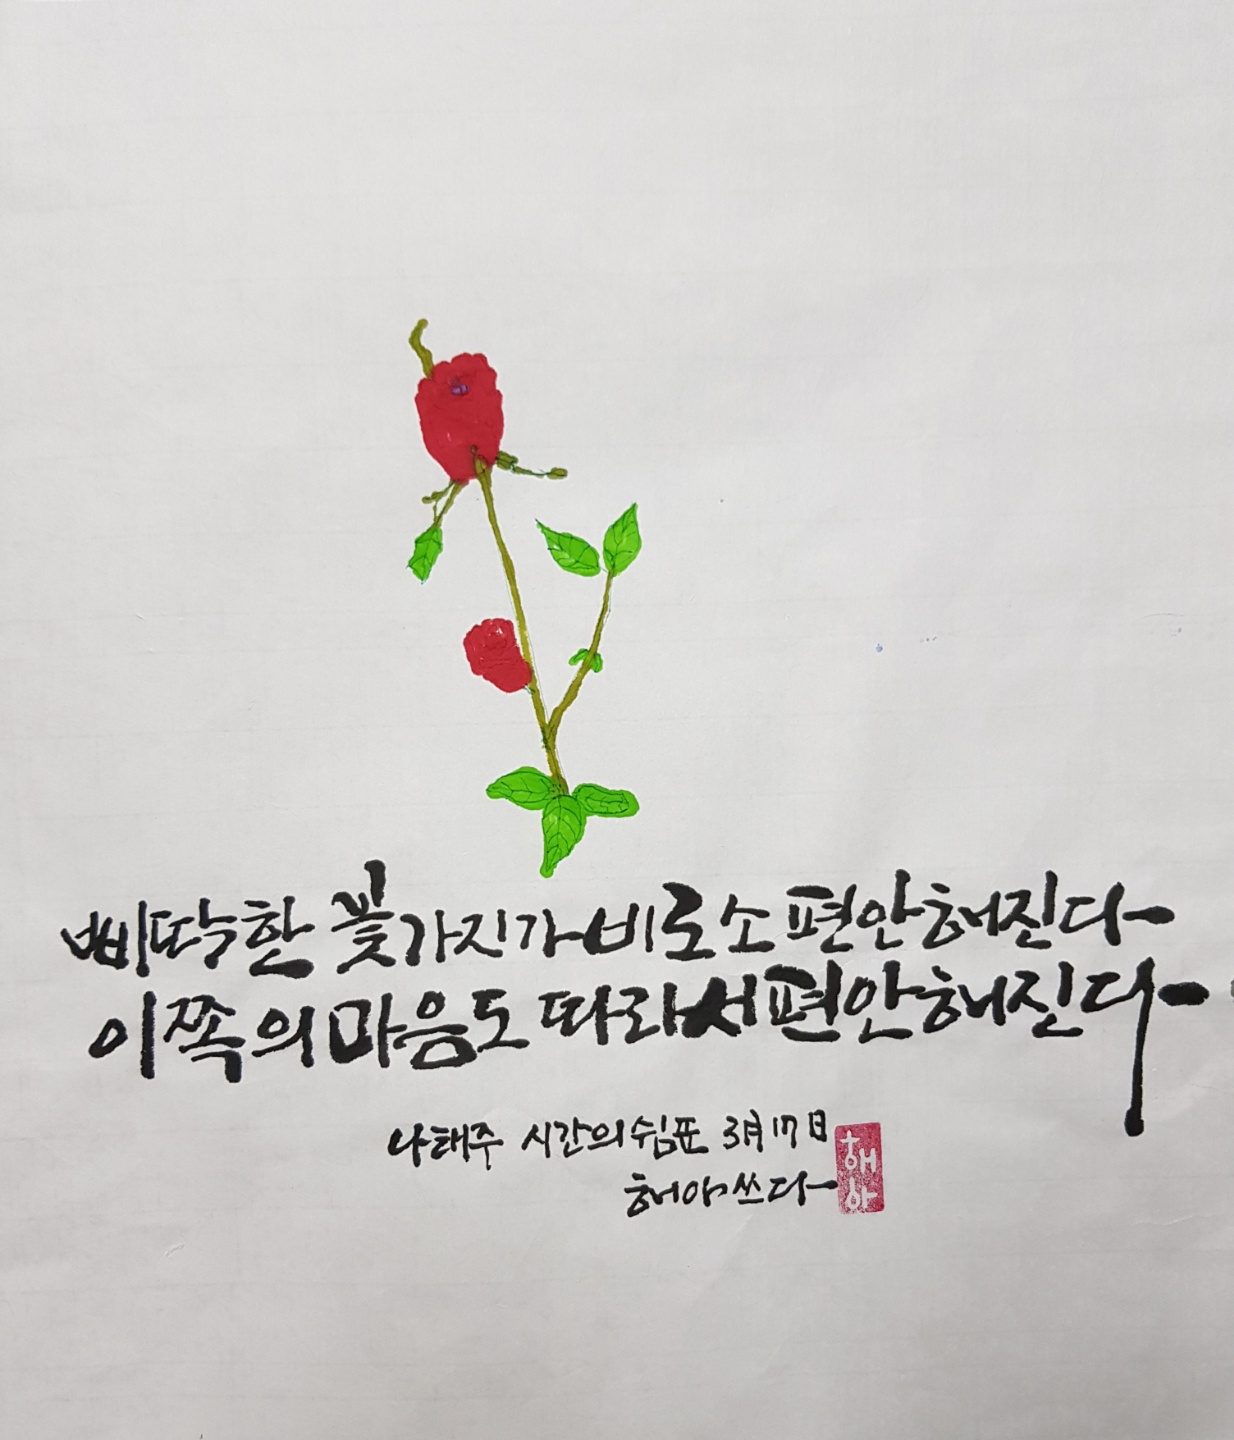 삐딱한 꽃가지가 비로소 편안해진다
이쪽의 마음도 따라서 편안해진다
나태주 시간의쉼표 3月 17日
쓰다